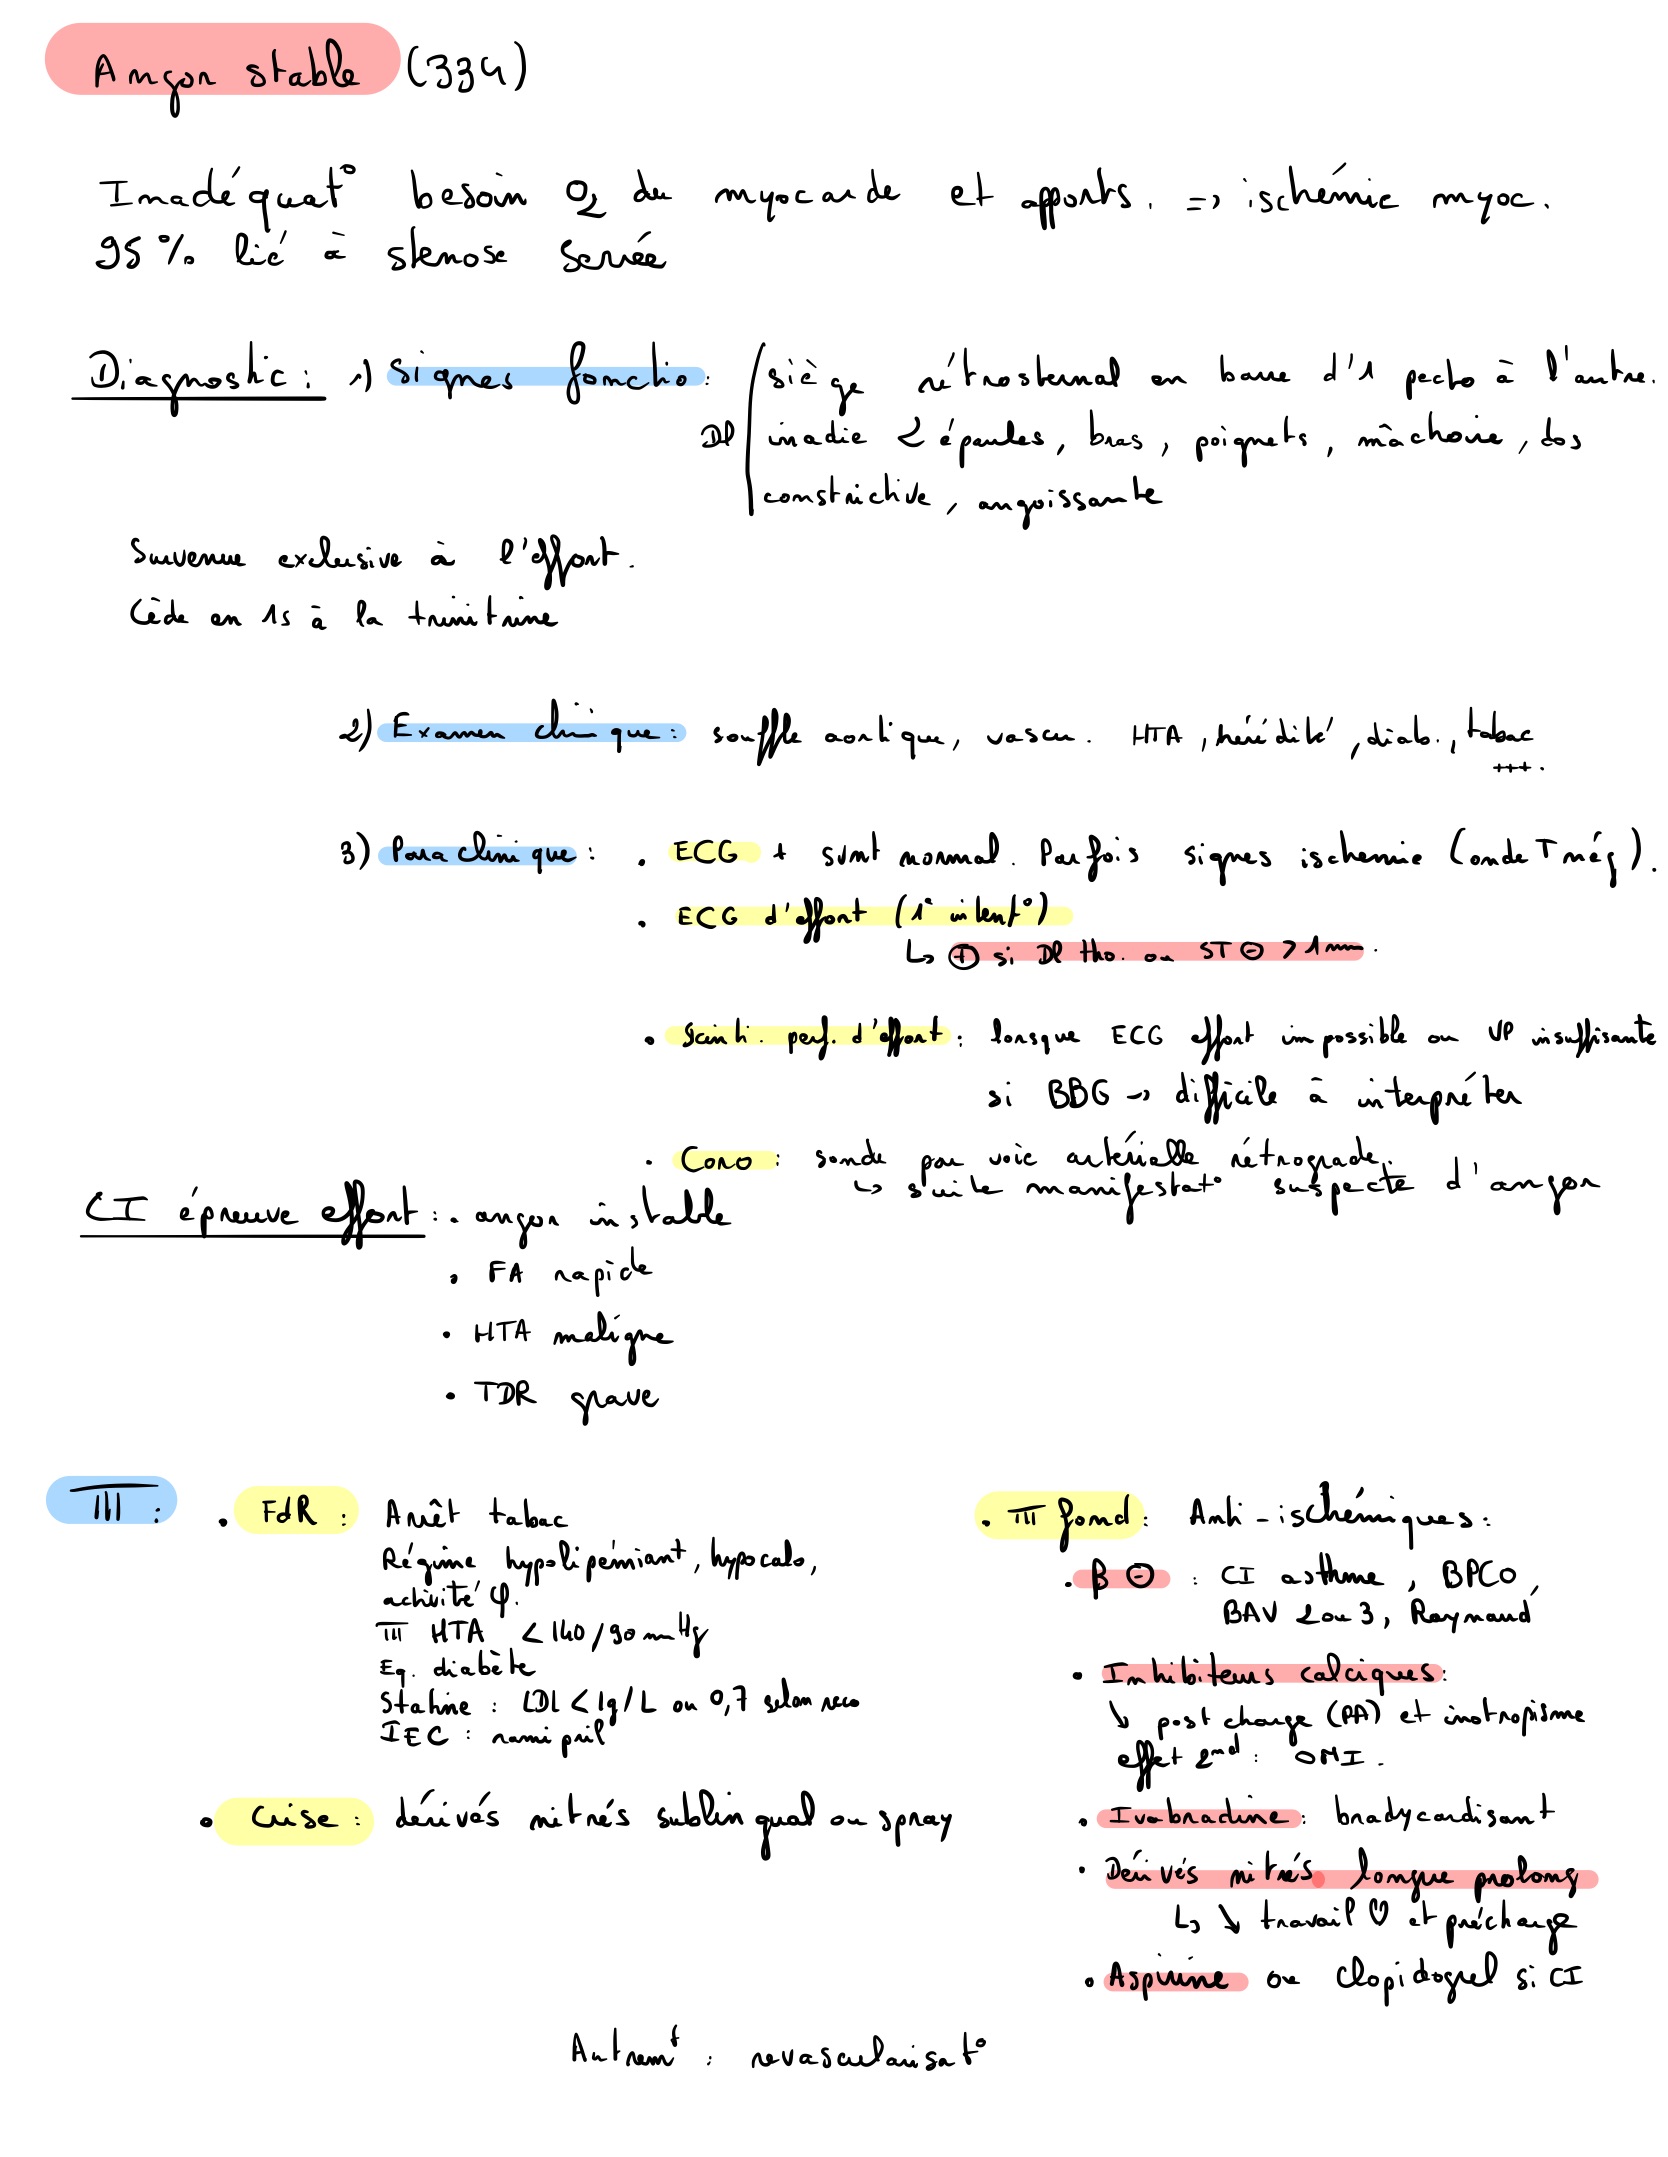 Angor stable (334)
Inadéquat° besoin O2 du myocarde et apports. => ischémie myoc.
95 % lié à stenose serrée
Diagnostic : 1) Signes fonctio :
Dl
siège rétrosternal en barre d'1 pecto à l'autre.
irradie 2 épaules, bras, poignets, mâchoire, dos
constrictive, angoissante
Survenue exclusive à l'effort.
Cède en 1s à la trinitrine
2) Examen clinique : souffle aortique, vascu. HTA, hérédité, diab., tabac
+++.
3) Paraclinique : • ECG + svnt normal. Parfois signes ischemie (onde T nég).
• ECG d'effort (1° intent°)
↳ ⊕ si Dl tho. ou ST ⊖ > 1 mm.
• Scinti. perf. d'effort : lorsque ECG effort impossible ou VP insuffisante
si BBG -> difficile à interpréter
• Coro : sonde par voie artérielle rétrograde.
↳ suite manifestat° suspecte d'angor
CI épreuve effort : • angor instable
• FA rapide
• HTA maligne
• TDR grave
TTT :
• FdR : Arrêt tabac
Régime hypolipémiant, hypocalo,
activité φ.
TTT HTA < 140/90 mmHg
Eq. diabète
Statine : LDL < 1g/L ou 0,7 selon reco
IEC : ramipril
• Crise : dérivés nitrés sublingual ou spray
• TTT fond : Anti-ischémiques :
• B ⊖ : CI asthme, BPCO,
BAV 2 ou 3, Raynaud
• Inhibiteurs calciques :
↘ post charge (PA) et inotropisme
effet 2nd : OMI.
• Ivabradine : bradycardisant
• Dérivés nitrés longue prolong
↳ ↘ travail ♡ et précharge
• Aspirine ou clopidogrel si CI
Autremt : revascularisat°